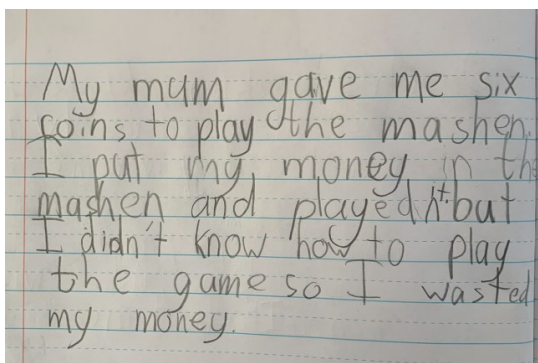 My mum gave me six
coins to play the mashen.
I put my money in the
mashen and played it but
I didn't know how to play
the game so I wasted
my money.